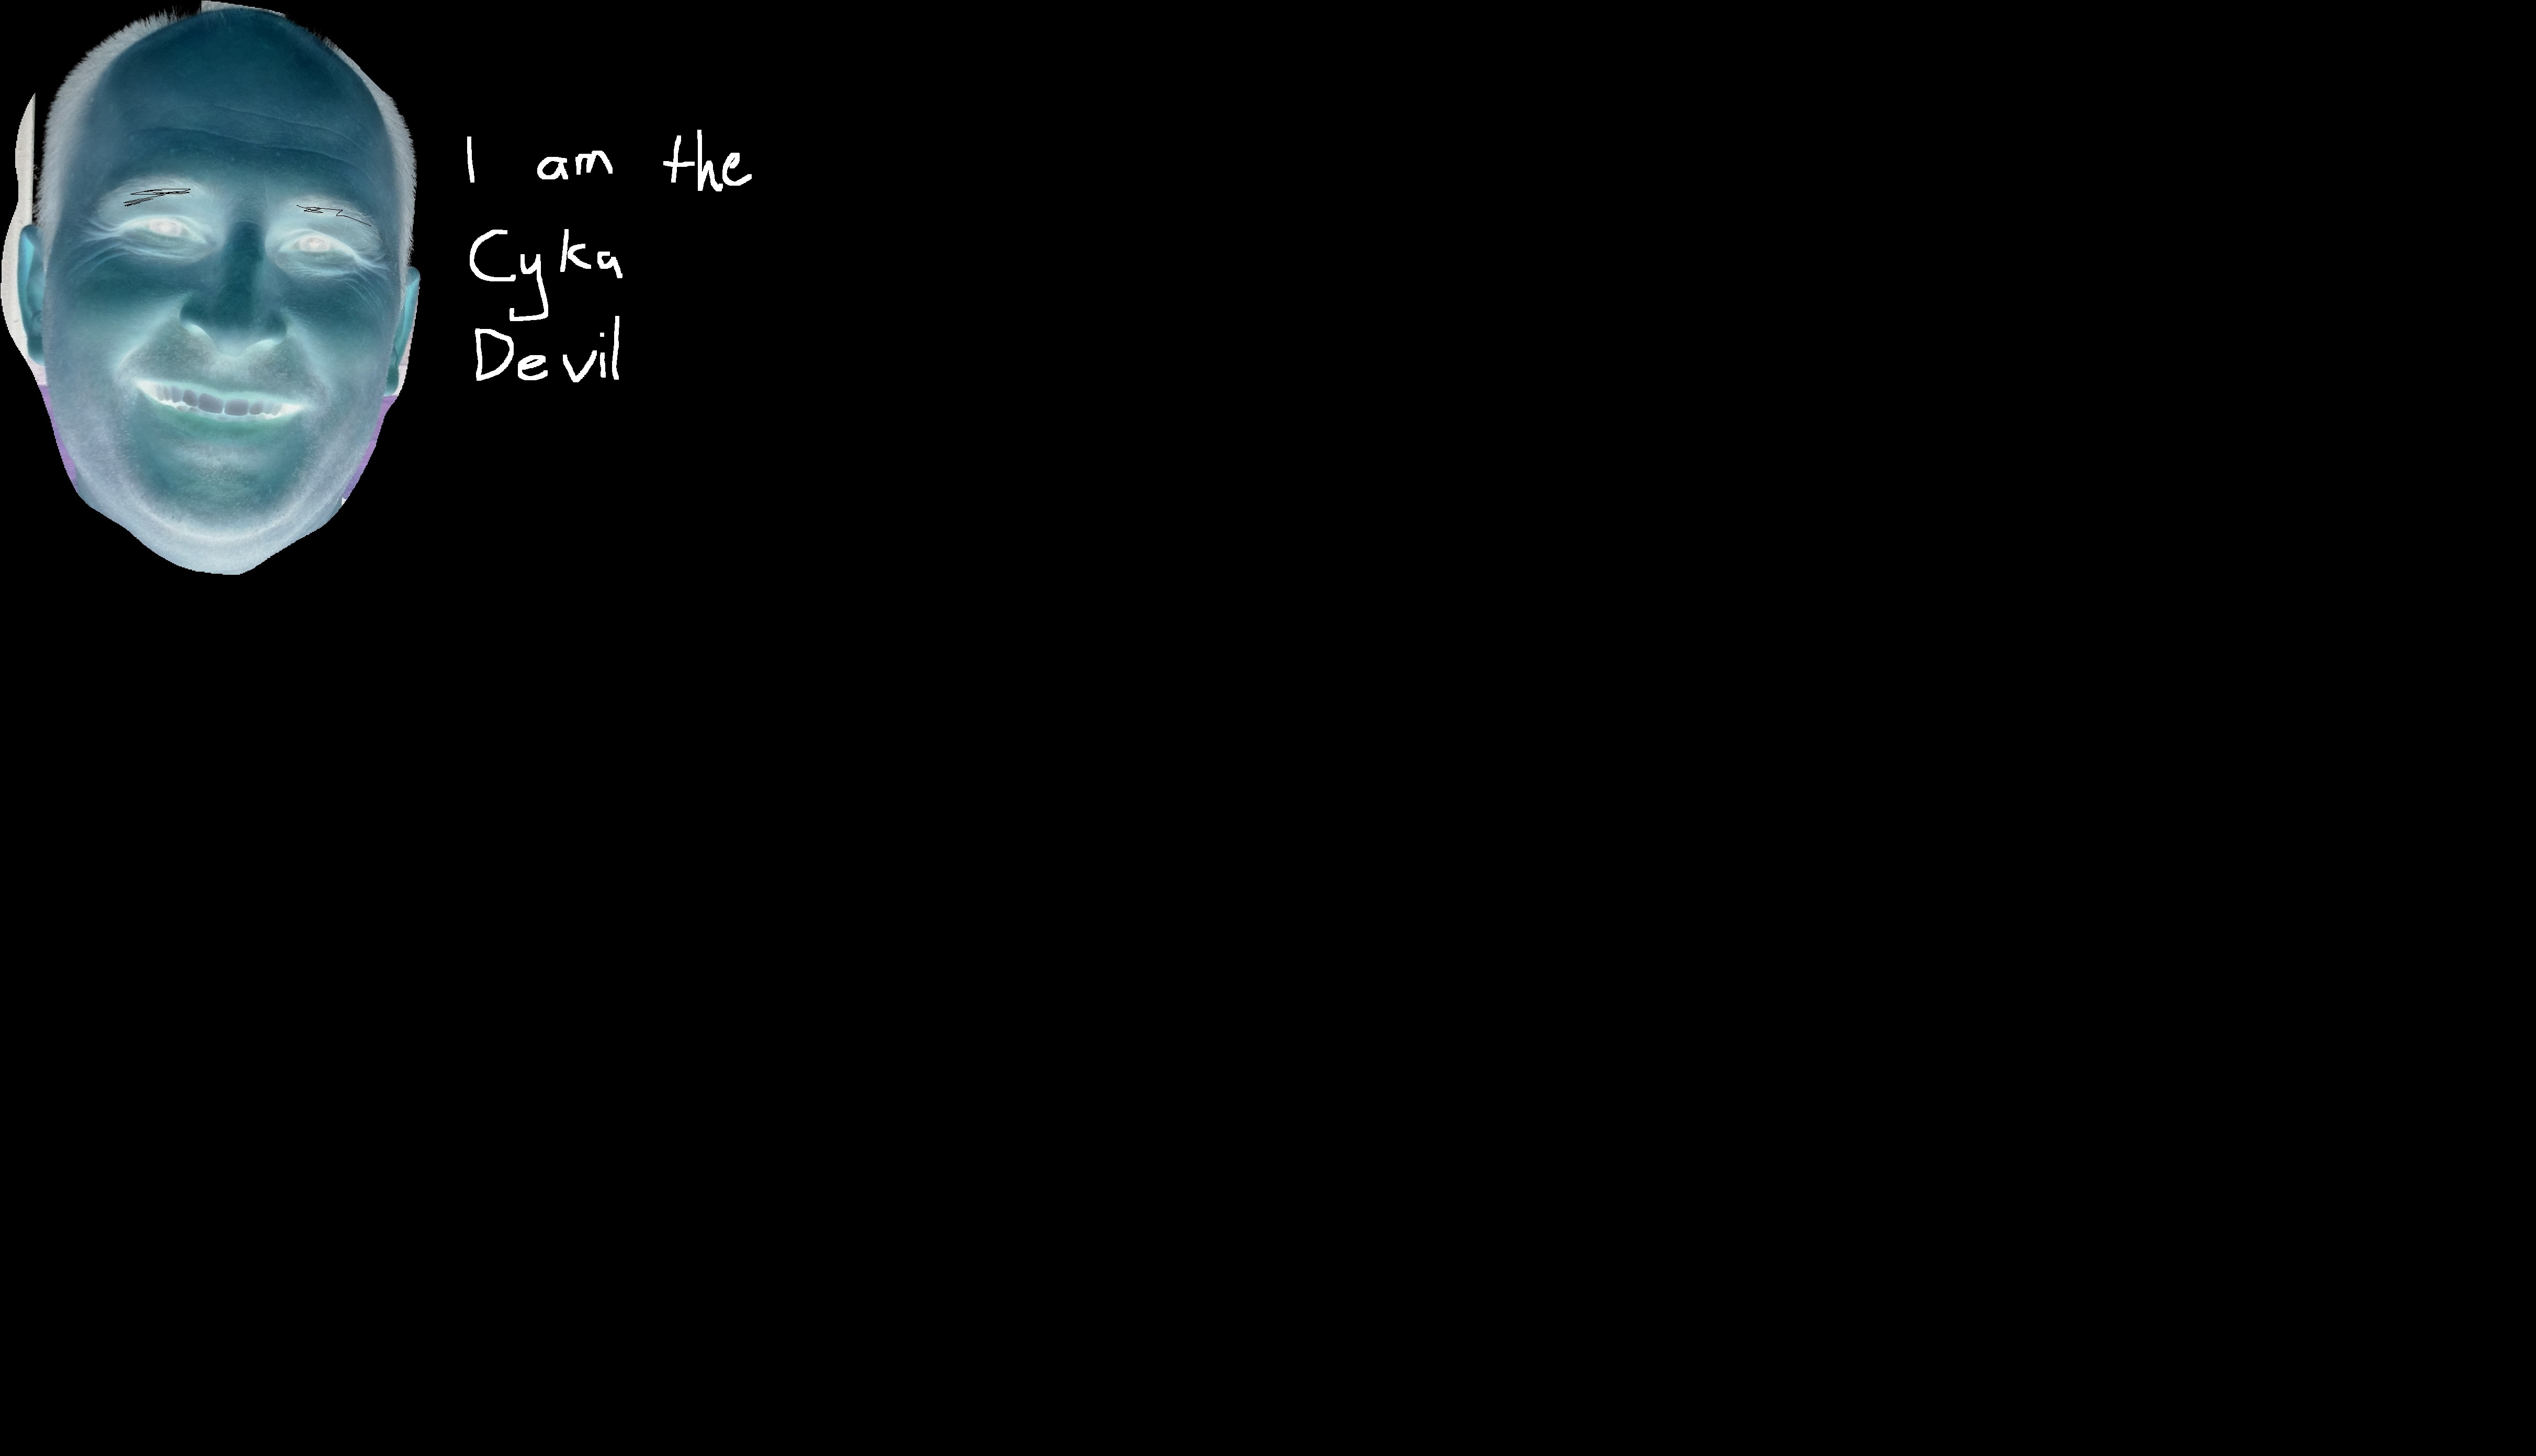 I am the
Cyka
Devil